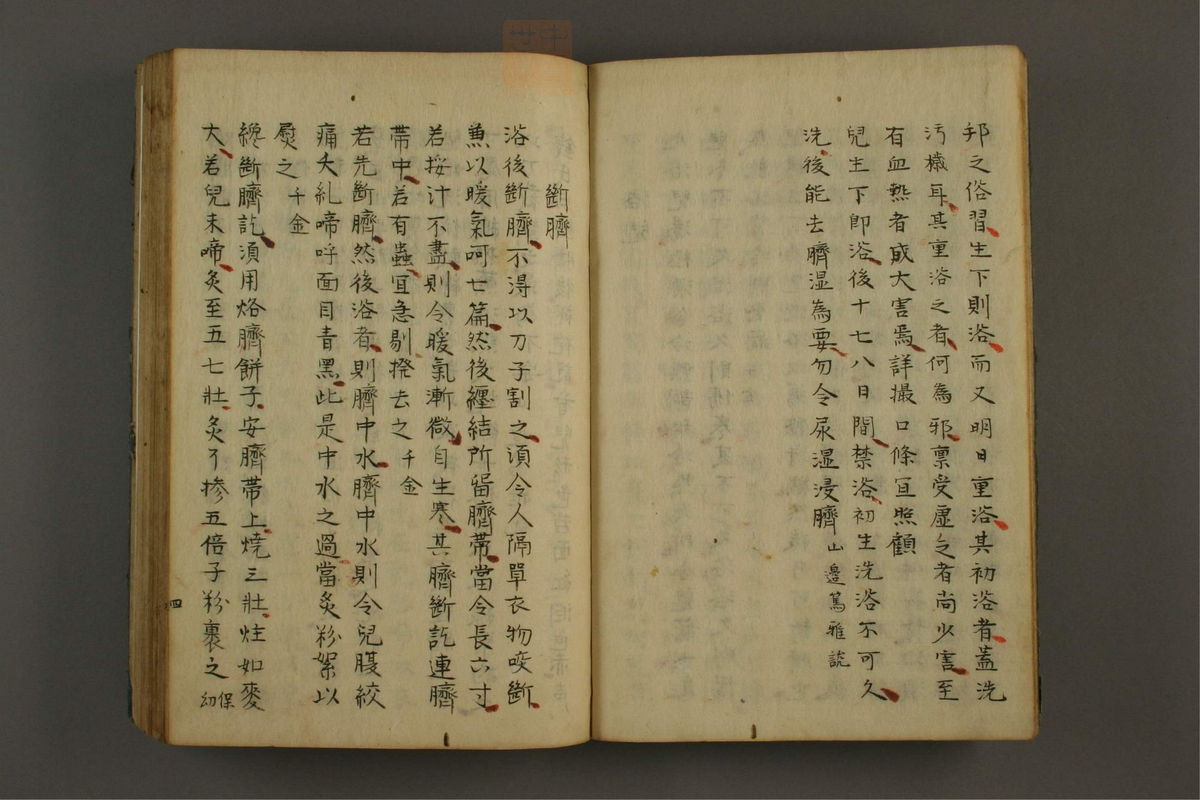 邦之俗習生下則浴而又明日重浴其初浴者蓋洗
汚檅耳其重浴之者何為邪禀受虛之者尚少害至
有血熱者成大害焉詳撮口條宜照顧
兒生下即浴後十七八日間禁浴初生洗浴不可久
洗後能去臍湿為要勿令尿湿浸臍山邉篤雅説
斷臍
浴後斷臍不得以刀子割之須令人隔單衣物咬斷
兼以暖氣呵七篇然後纏結所留臍帶當令長六寸
若挼汁不盡則令暖氣漸微自生寒其臍斷訖連臍
帶中若有蟲宜急剔撥去之千金
若先斷臍然後浴者則臍中水臍中水則令兒腹絞
痛大糺啼呼面目青黑此是中水之過當灸粉絮以
熨之千金
纔斷臍訖須用烙臍餅子安臍帶上燒三壯炷如麥
大若兒未啼灸至五七壯灸了摻五倍子粉裹之保幼
四